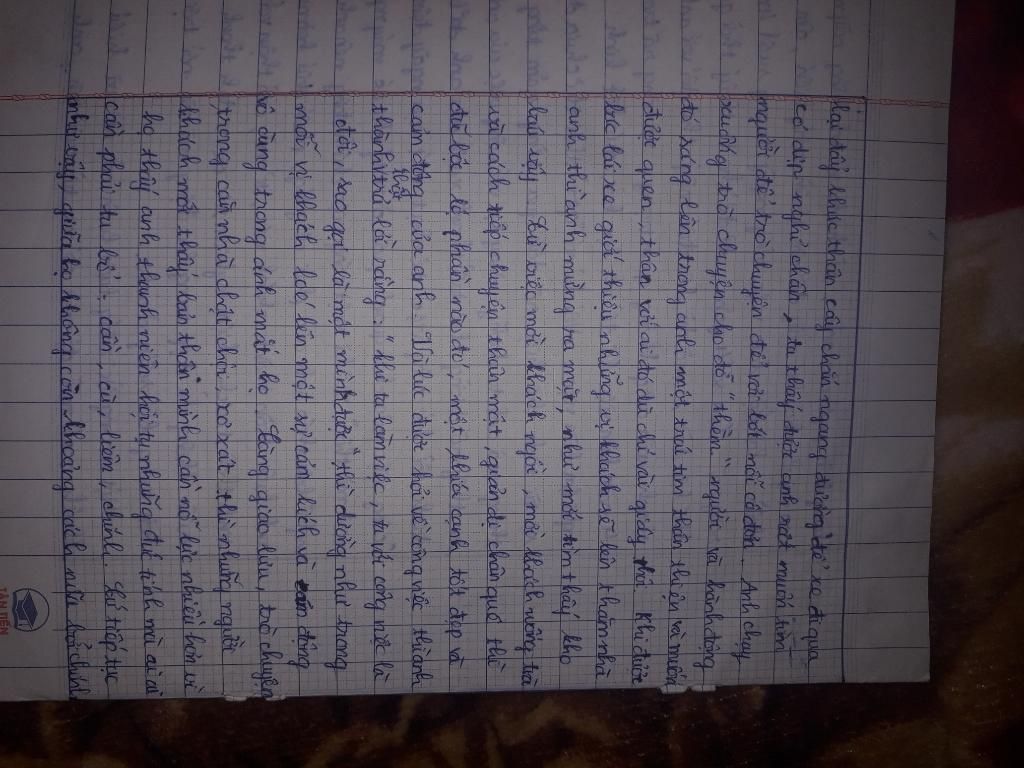 lại đẩy khúc thân cây chắn ngang đường để xe đi qua
có dịp nghỉ chân, ta thấy được anh rất muốn tìm
người để trò chuyện để vơi bớt nỗi cô đơn. Anh chạy
xuống trò chuyện cho đỡ "thèm" người và hành động
đó sáng lên trong anh một trái tim thân thiện và muốn
được quen, thân với ai đó dù chỉ vài giây thôi. Khi được
bác lái xe giới thiệu những vị khách sẽ lên thăm nhà
anh thì anh mừng ra mặt, như mới tìm thấy kho
báu vậy. Từ việc mời khách ngồi, mời khách uống trà
và cách tiếp chuyện thân mật, giản dị chân quê thì
đã bộc lộ phần nào đó, một khía cạnh tốt đẹp và
cảm động của anh. Và lúc được hỏi về công việc thì anh
thành thật trả lời rằng: "khi ta làm việc, ta với công việc là
đôi, sao gọi là một mình được" thì dường như trong
mỗi vị khách ldó lên một sự cảm kích và động
vô cùng trong ánh mắt họ. Càng giao lưu, trò chuyện
trong căn nhà chật chội, xơ xát thì những người
khách mới thấy bản thân mình cần nỗ lực nhiều hơn vì
họ thấy anh thanh niên hội tụ những đức tính mà ai ai
cần phải tu bổ: cần, cù, liêm, chính. Cứ tiếp tục
như vậy, giữa họ không còn khoảng cách nữa bởi chính
TÂN TIẾN